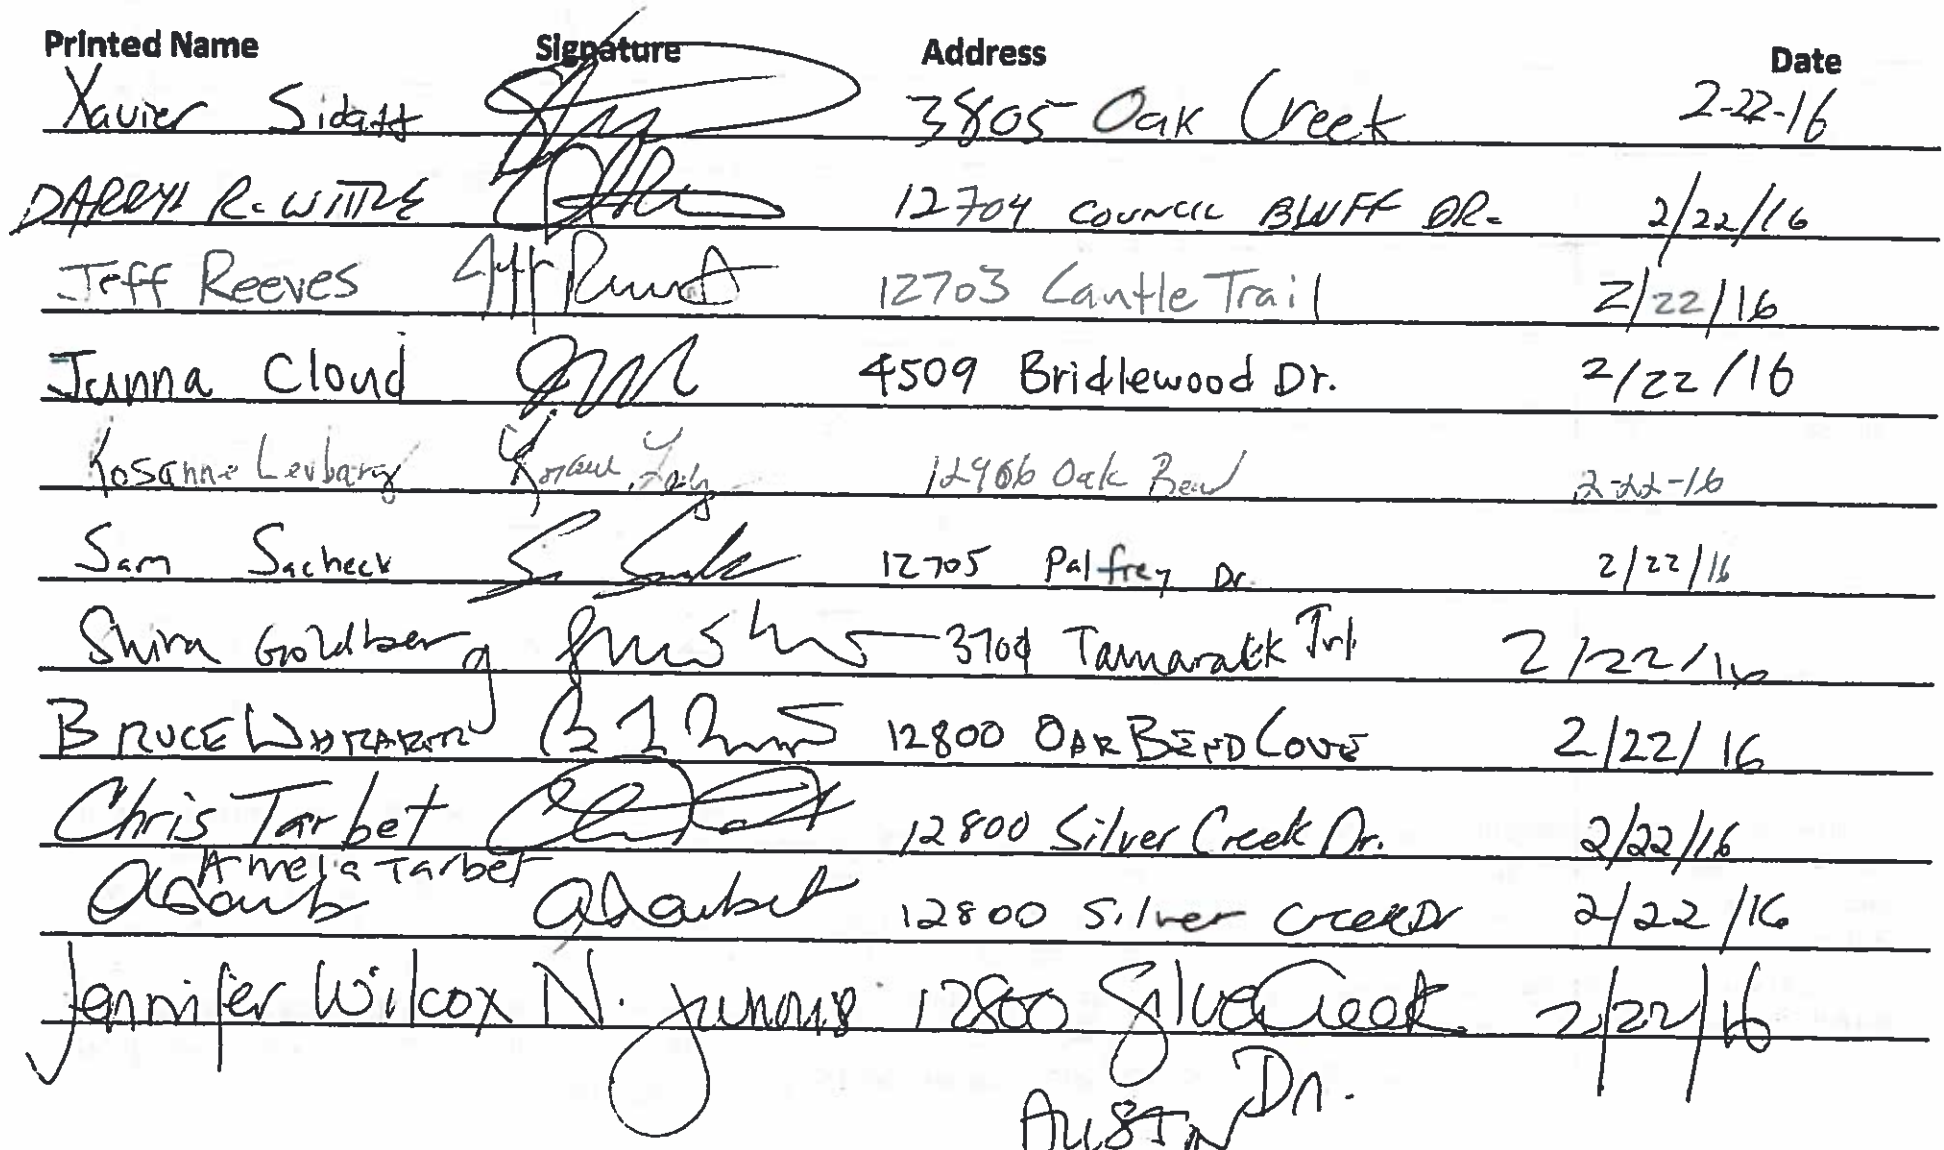 Printed Name Signature Address Date
Xavier Sidatt 3805 Oak Creek 2-22-16
DARRYL R. WITTLE 12704 COUNCIL BLUFF DR. 2/22/16
Jeff Reeves Jeff 12703 Cantle Trail 2/22/16
Junna Cloud 4509 Bridlewood Dr. 2/22/16
Rosanne Levbarg Oak 2-22-16
Sam Sacheck 12705 Palfrey Dr. 2/22/16
Shira Goldberg Tamarack Trl 2/22/16
BRUCE 12800 OAK BEND COVE 2/22/16
Chris Tarbet 12800 Silver Creek Dr. 2/22/16
Amelia Tarbet
12800 Silver Creek Dr 2/22/16
Jennifer Wilcox N. 12800 Silver Creek 2/22/16
Dr.
AUSTIN